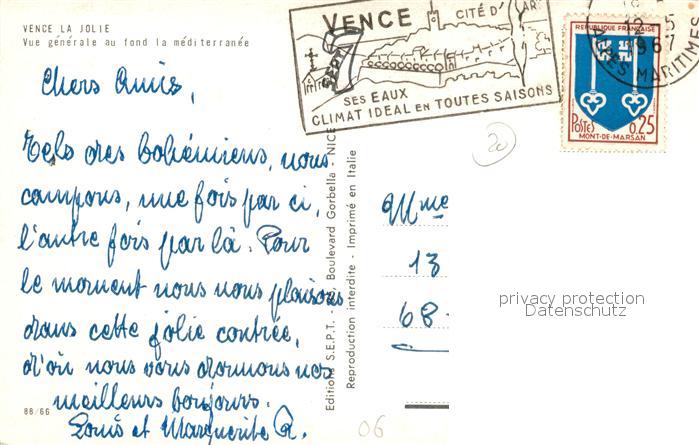 VENCE LA JOLIE
Vue générale au fond la méditerranée
Chers Amis,
Tels des bohémiens, nous
campons, une fois par ci,
l'autre fois par là. Pour
le moment nous nous plaisons
dans cette jolie contrée,
d'où nous vous donnons nos
meilleurs bonjours.
Louis et Marguerite R.
88/66
VENCE CITÉ D'ART
7 SEPT
SES EAUX
CLIMAT IDEAL EN TOUTES SAISONS
12-5
1967
MARITIMES
REPUBLIQUE FRANÇAISE
POSTES 0,25
MONT-DE-MARSAN
20
Editions S.E.P.T. - Boulevard Gorbella - NICE
Reproduction interdite - Imprimé en Italie
Mme
13
68
privacy protection
Datenschutz
06